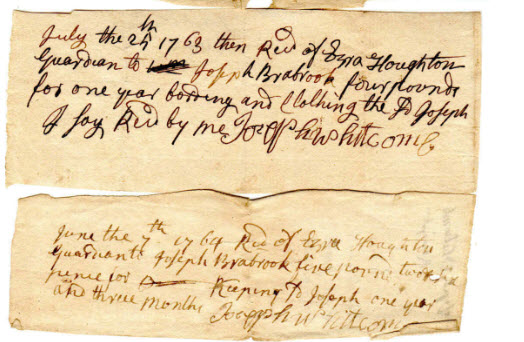 July the 25th 1763 then Recd of Ezra Houghton
Guardian to Joseph Brabrook four pounds
for one year bording and Clothing the Sd Joseph
I say Recd by me Joseph Whitcomb
June the 7th 1764 Recd of Ezra Houghton
Guardian to Joseph Brabrook five pound twelve
pence for Keeping Sd Joseph one year
and three months
Joseph Whitcom